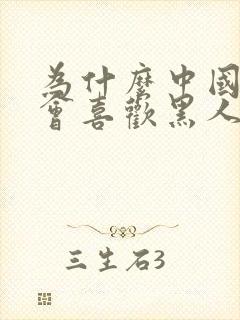 為什麼中國
會喜歡黑人
三生石3